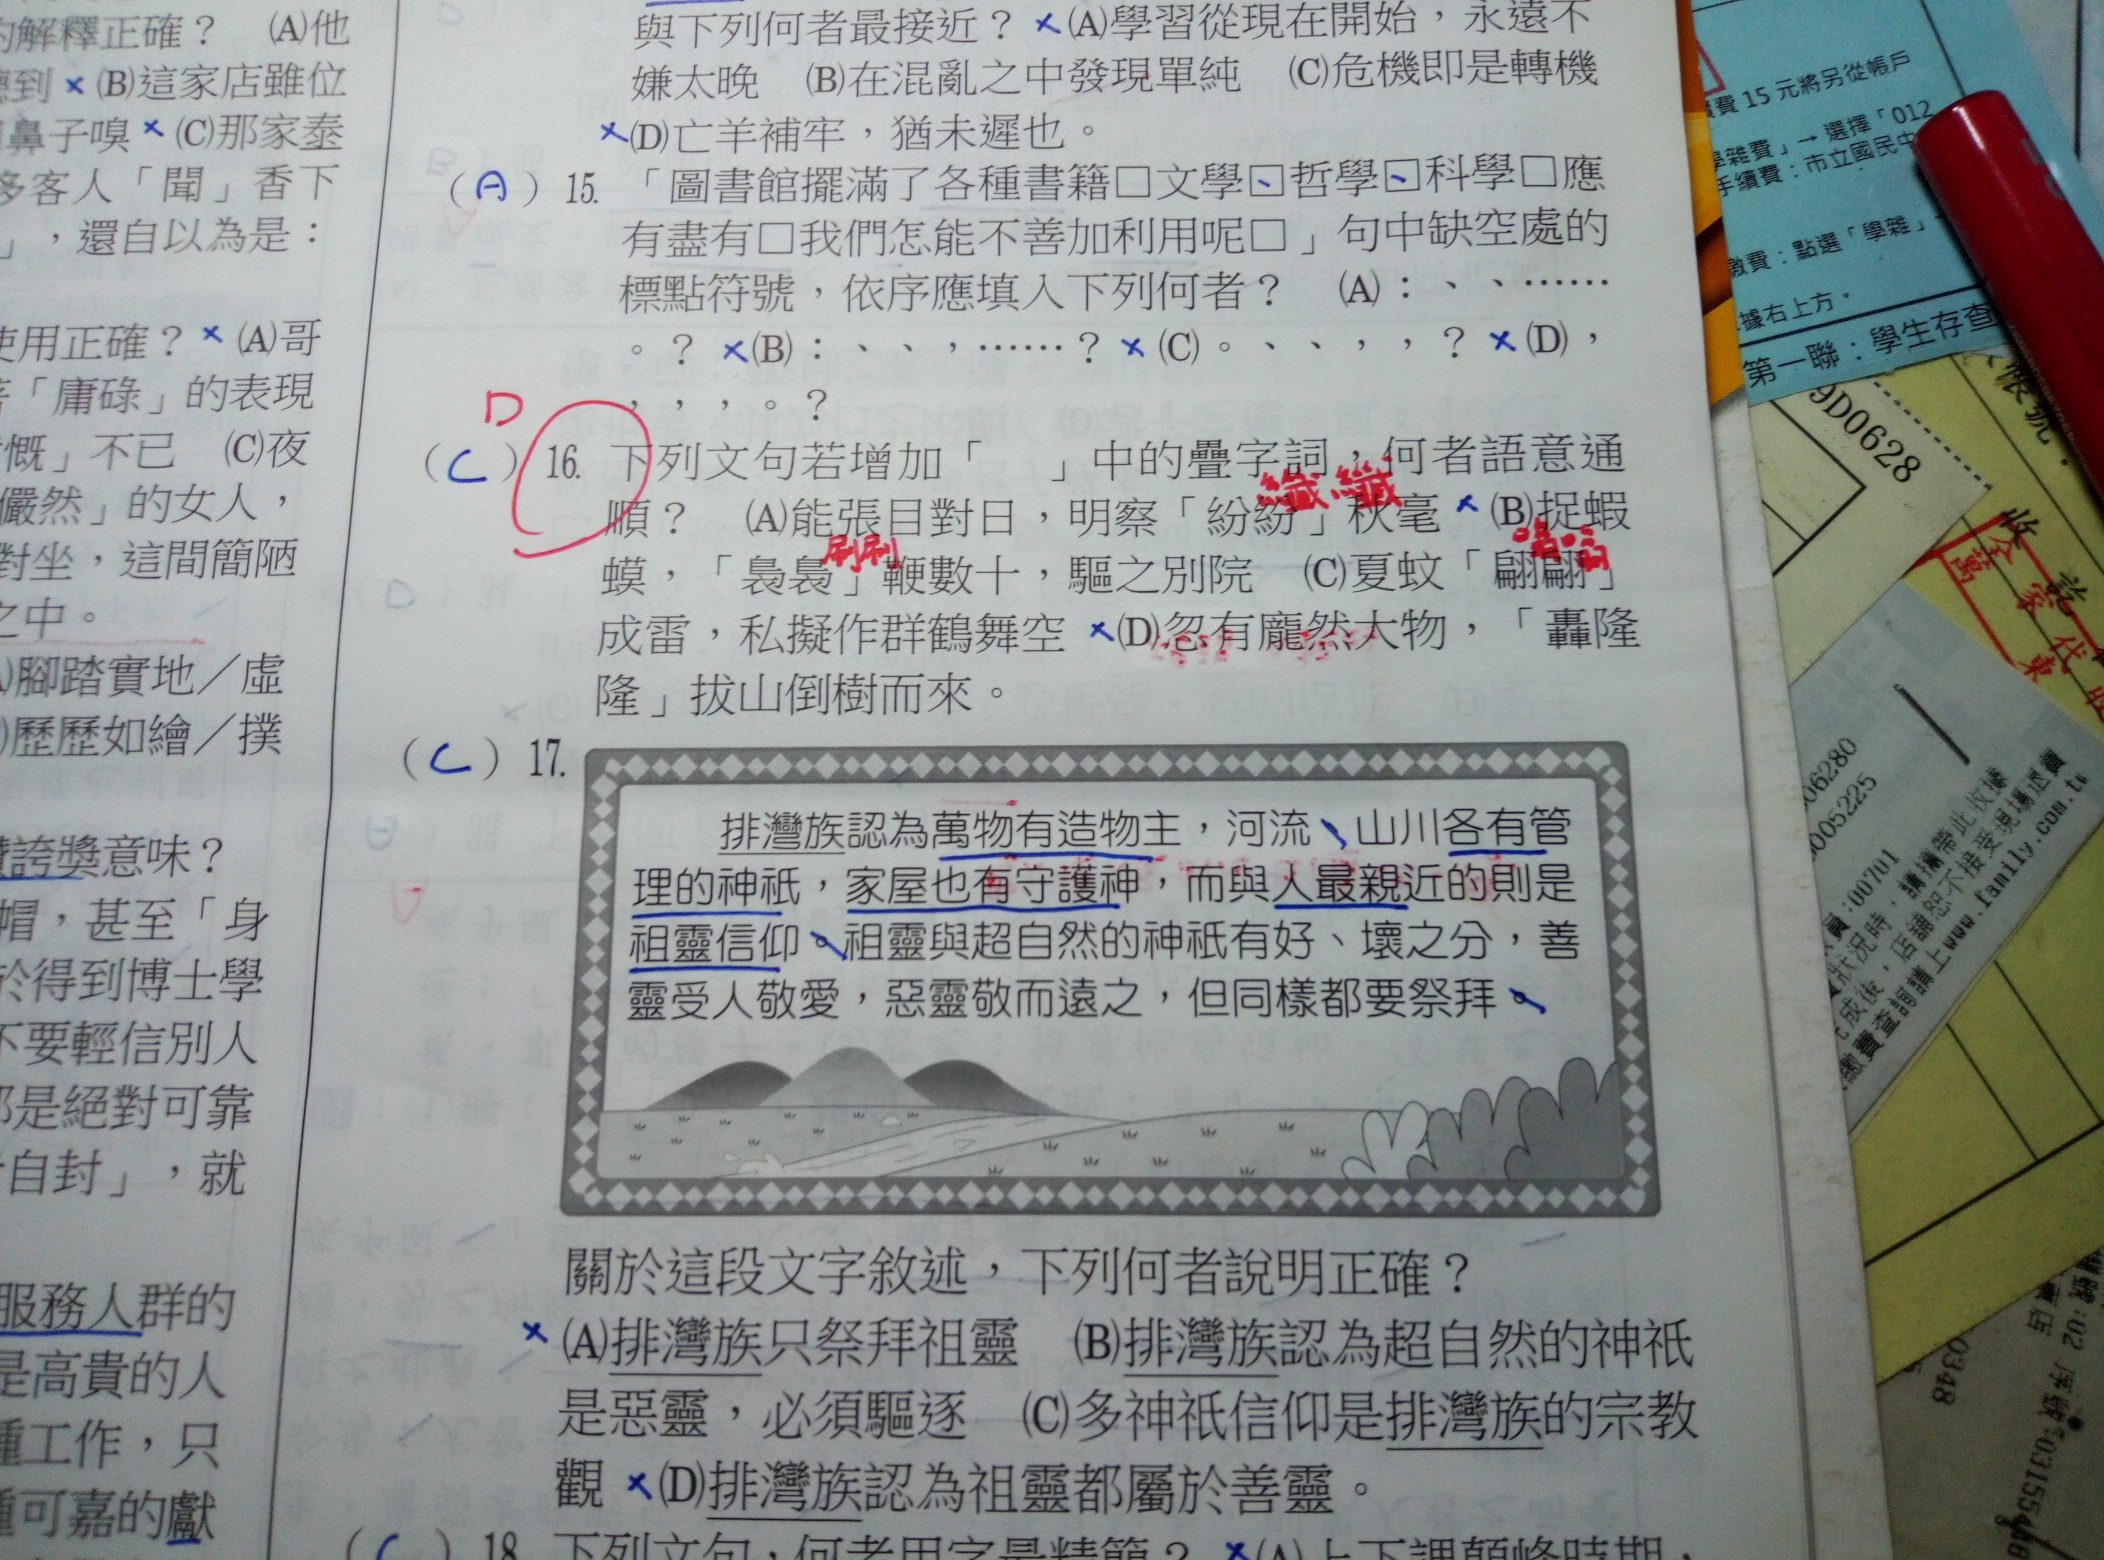 的解釋正確？　(A)他
聽到×(B)這家店雖位
用鼻子嗅×(C)那家泰
多客人「聞」香下
」，還自以為是：
使用正確？×(A)哥
「庸碌」的表現
慨」不已　(C)夜
儼然」的女人，
對坐，這間簡陋
之中。
腳踏實地／虛
歷歷如繪／撲
誇獎意味？
帽，甚至「身
於得到博士學
不要輕信別人
都是絕對可靠
自封」，就
服務人群的
是高貴的人
種工作，只
種可嘉的獻
與下列何者最接近？×(A)學習從現在開始，永遠不
嫌太晚　(B)在混亂之中發現單純　(C)危機即是轉機
×(D)亡羊補牢，猶未遲也。
（A）15.「圖書館擺滿了各種書籍□文學□、哲學□、科學□應
有盡有□我們怎能不善加利用呢□」句中缺空處的
標點符號，依序應填入下列何者？　(A)：、、……
。？×(B)：、、，……？×(C)。、、，，？×(D)，
，，，。？
D
（C）16.下列文句若增加「　」中的疊字詞，何者語意通
纖纖
順？　(A)能張目對日，明察「紛紛」秋毫×(B)捉蝦
刷刷　嗡嗡
蟆，「裊裊」鞭數十，驅之別院　(C)夏蚊「翩翩」
成雷，私擬作群鶴舞空×(D)忽有龐然大物，「轟隆
隆」拔山倒樹而來。
（C）17.
排灣族認為萬物有造物主，河流、山川各有管
理的神祇，家屋也有守護神，而與人最親近的則是
祖靈信仰。祖靈與超自然的神祇有好、壞之分，善
靈受人敬愛，惡靈敬而遠之，但同樣都要祭拜。
關於這段文字敘述，下列何者說明正確？
×(A)排灣族只祭拜祖靈　(B)排灣族認為超自然的神祇
是惡靈，必須驅逐　(C)多神祇信仰是排灣族的宗教
觀×(D)排灣族認為祖靈都屬於善靈。
（C）18.下列文句，何者用字最精簡？×(A)上下課顛峰時期，
費15元將另從帳戶
學雜費」→選擇「012
手續費：市立國民中
繳費：點選「學雜」
據右上方。
第一聯：學生存查
9D0628
06280
005225
:00701
www.family.com.tw
全家
0348